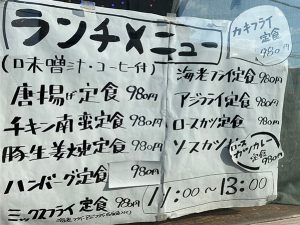 ランチメニュー
(味噌汁・コーヒー付)
唐揚げ定食 980円
チキン南蛮定食 980円
豚生姜焼定食 980円
ハンバーグ定食 980円
ミックスフライ定食 980円
カキフライ定食 980円
海老フライ定食 980円
アジフライ定食 980円
ロースカツ定食 980円
ソースカツ
ロースカツカレー定食 980円
11:00~13:00